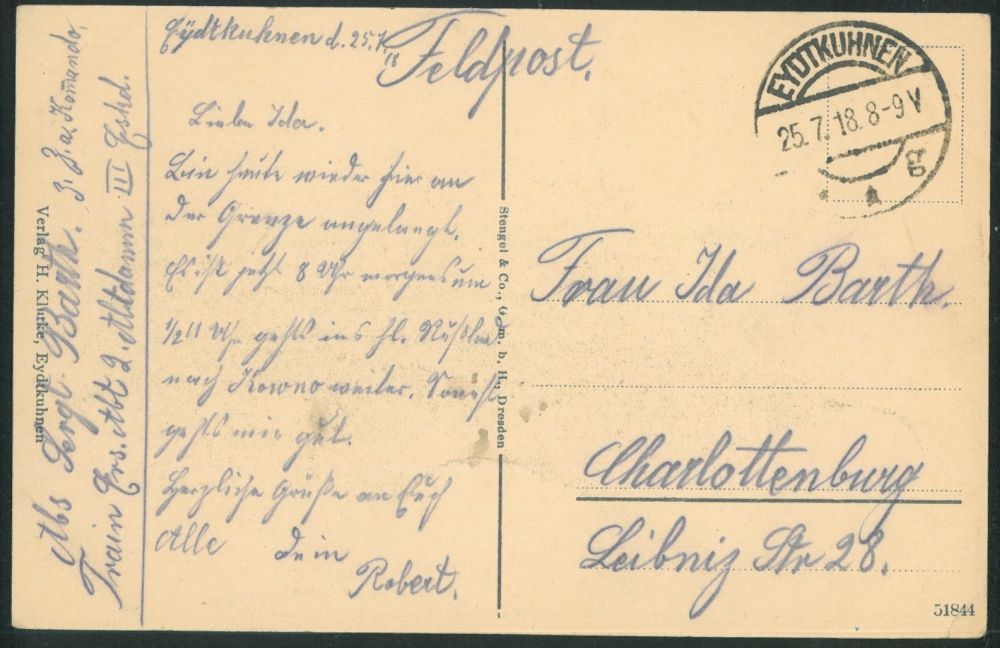 Eydtkuhnen d. 25.7.18
Feldpost.
Liebe Ida.
Bin heute wieder hier an
der Grenze angelangt.
Es ist jetzt 8 Uhr morgens um
1/2 11 Uhr gehts ins hl. Rußland
nach Kowno weiter. Sonst
gehts mir gut.
Herzliche Grüße an Euch
Alle dein
Robert.
Abs Sergt. Barth. 3. Komando.
Train Ers. Abt 2. Altdamm III Eskd.
Verlag H. Klutke, Eydtkuhnen
Stengel & Co., G. m. b. H., Dresden
EYDTKUHNEN
25.7.18. 8-9 V
* a g
Frau Ida Barth.
Charlottenburg
Leibniz Str 28.
51844